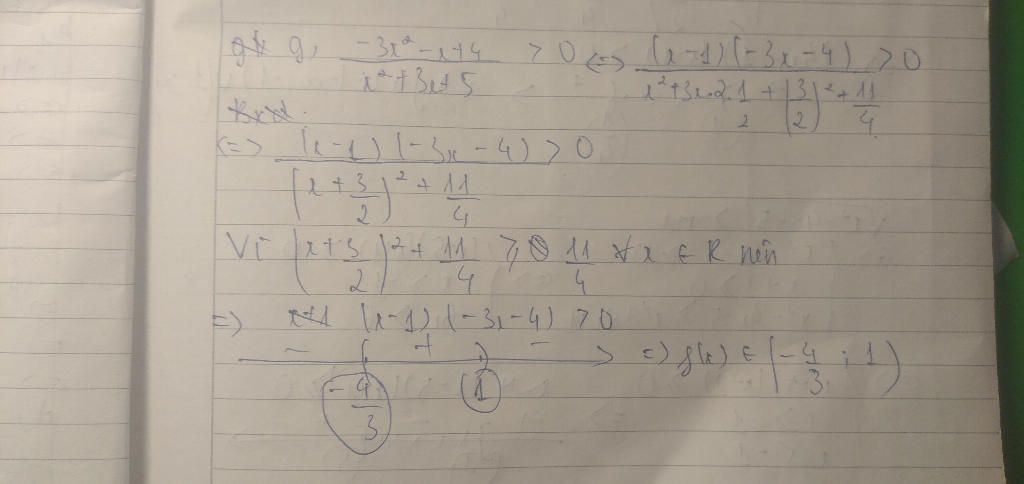 g, (-3x² - x + 4)/(x² + 3x + 5) > 0 <=> ((x-1)(-3x-4))/(x² + 3x.2.1/2 + (3/2)² + 11/4) > 0
<=> ((x-1)(-3x-4))/((x + 3/2)² + 11/4) > 0
Vì (x + 3/2)² + 11/4 ⩾ 11/4 ∀x ∈ R nên
=> (x-1)(-3x-4) > 0
- ( + ) - => f(x) ∈ (-4/3 ; 1)
-4/3 1